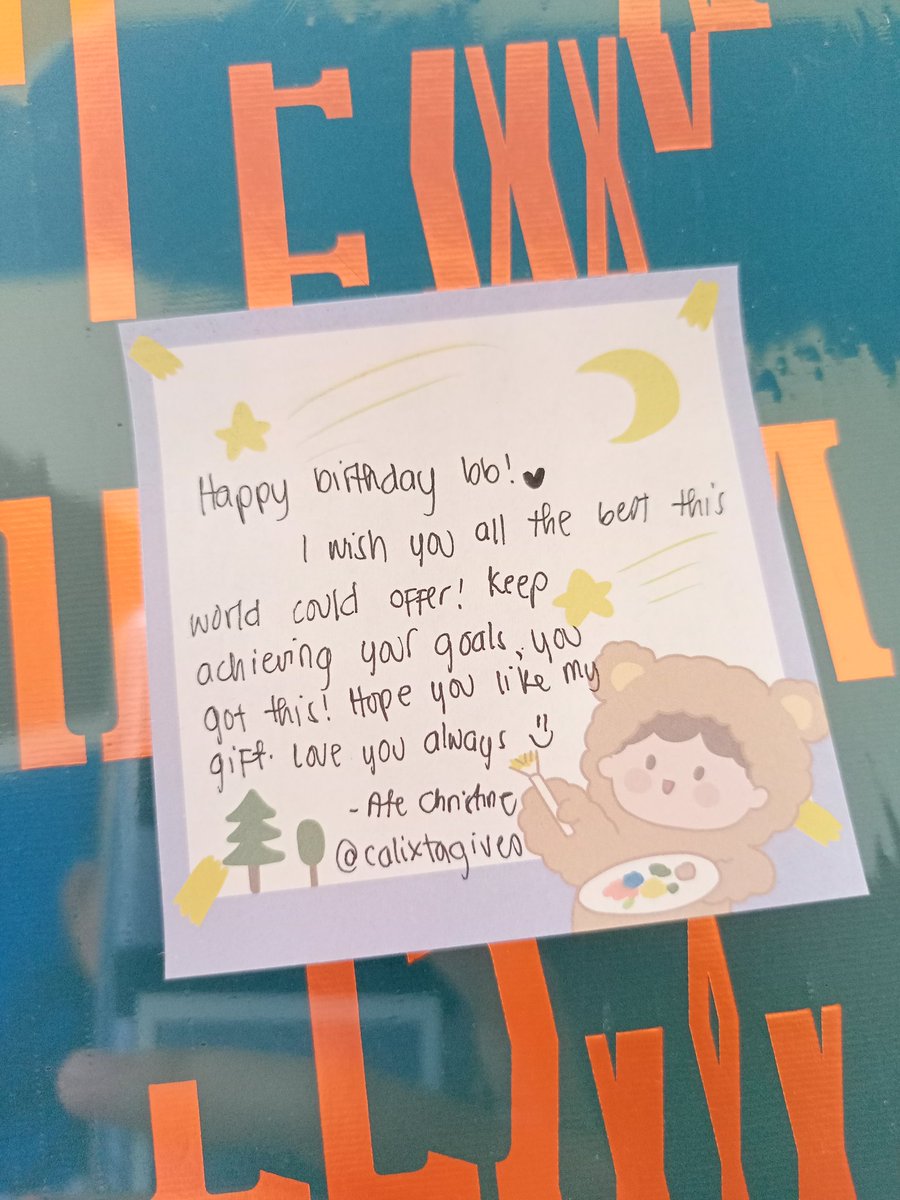 Happy birthday bb! ♥
I wish you all the best this
world could offer! Keep
achieving your goals, you
got this! Hope you like my
gift. Love you always :)
- Ate Christine
@calixtagives